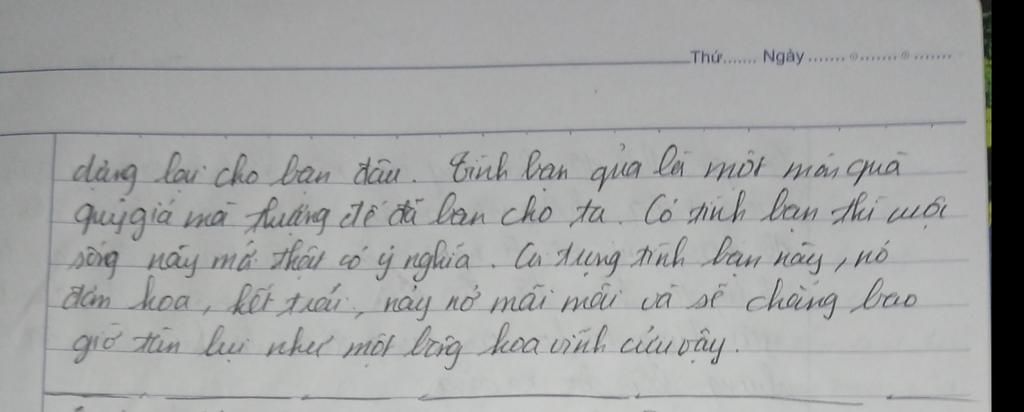 Thứ....... Ngày ....... ....... .......
dàng lại cho bạn đâu. Tình bạn quả là một món quà
quý giá mà thượng đế đã ban cho ta. Có tình bạn thì cuộc
sống này mới thật có ý nghĩa. Cứ tưng tình bạn này, nó
đơm hoa, kết trái, nảy nở mãi mãi và sẽ chẳng bao
giờ tàn lụi như một bông hoa vĩnh cửu vậy.